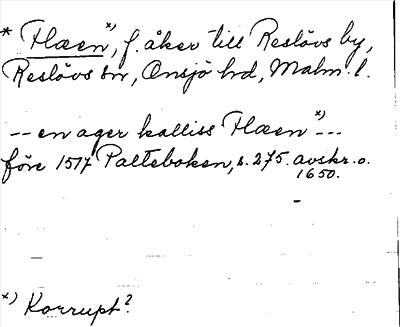 * Flæen x), f. åker till Reslövs by,
Reslövs sn, Onsjö hd, Malm. l.
-- en ager kalliss Flæen x) --
före 1517 Palteboken, s. 275. avskr. o.
1650.
x) Korrupt?